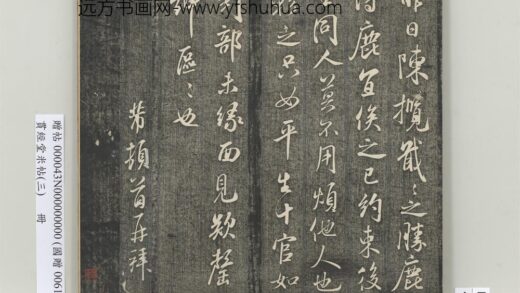 远方书画网-www.yfshuhua.com
昨日陳攬戢戢之勝鹿
得鹿宜俟之已約束後
同人莫不用煩他人也
之只如平生十官如
部未緣面見欵罄
區區也
芾頓首再拜
贈帖 000043N000000000 (國贈 0061
貫經堂米帖(三) 冊